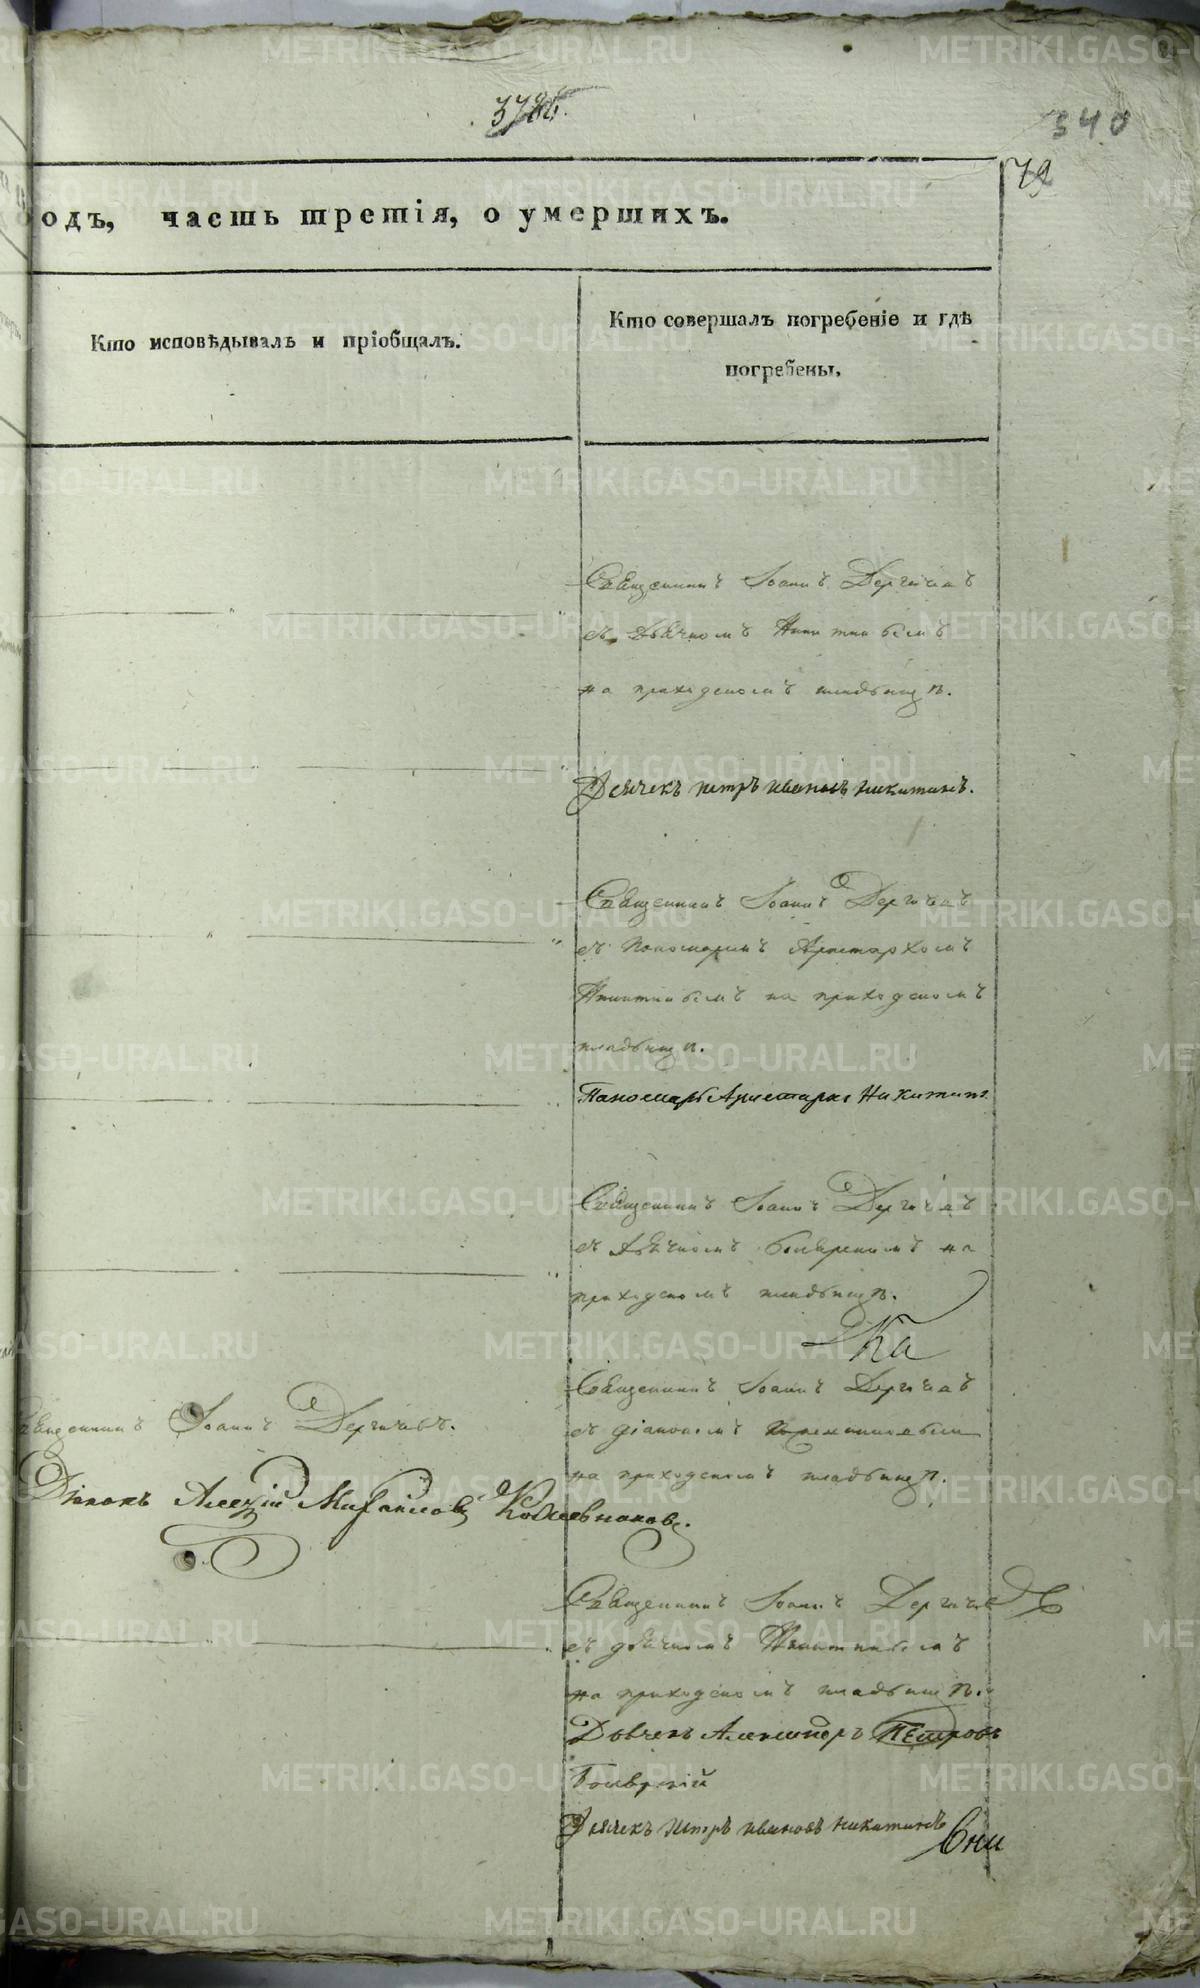 340
79
одъ, часть третія, о умершихъ.
Кто исповѣдывалъ и пріобщалъ.
Кто совершалъ погребеніе и гдѣ
погребены.
Священникъ Іоаннъ Дергачевъ
съ дьячкомъ Никитинымъ
на приходскомъ кладбищѣ.
Дьячекъ петръ ивановъ никитинъ.
Священникъ Іоаннъ Дергачевъ
съ пономаремъ Аристархомъ
Никитинымъ на приходскомъ
кладбищѣ.
Паномарь Аристархъ Никитинъ
Священникъ Іоаннъ Дергачевъ
съ дьячкомъ на
приходскомъ кладбищѣ.
Священникъ Іоаннъ Дергачевъ
съ діакономъ
на приходскомъ кладбищѣ.
Священникъ Іоаннъ Дергачевъ.
Діаконъ Алексій Михайловъ
Священникъ Іоаннъ Дергачевъ
съ дьячкомъ Никитинымъ
на приходскомъ кладбищѣ.
Дьячекъ Александръ Петровъ
Дьячекъ петръ ивановъ никитинъ
METRIKI.GASO-URAL.RU